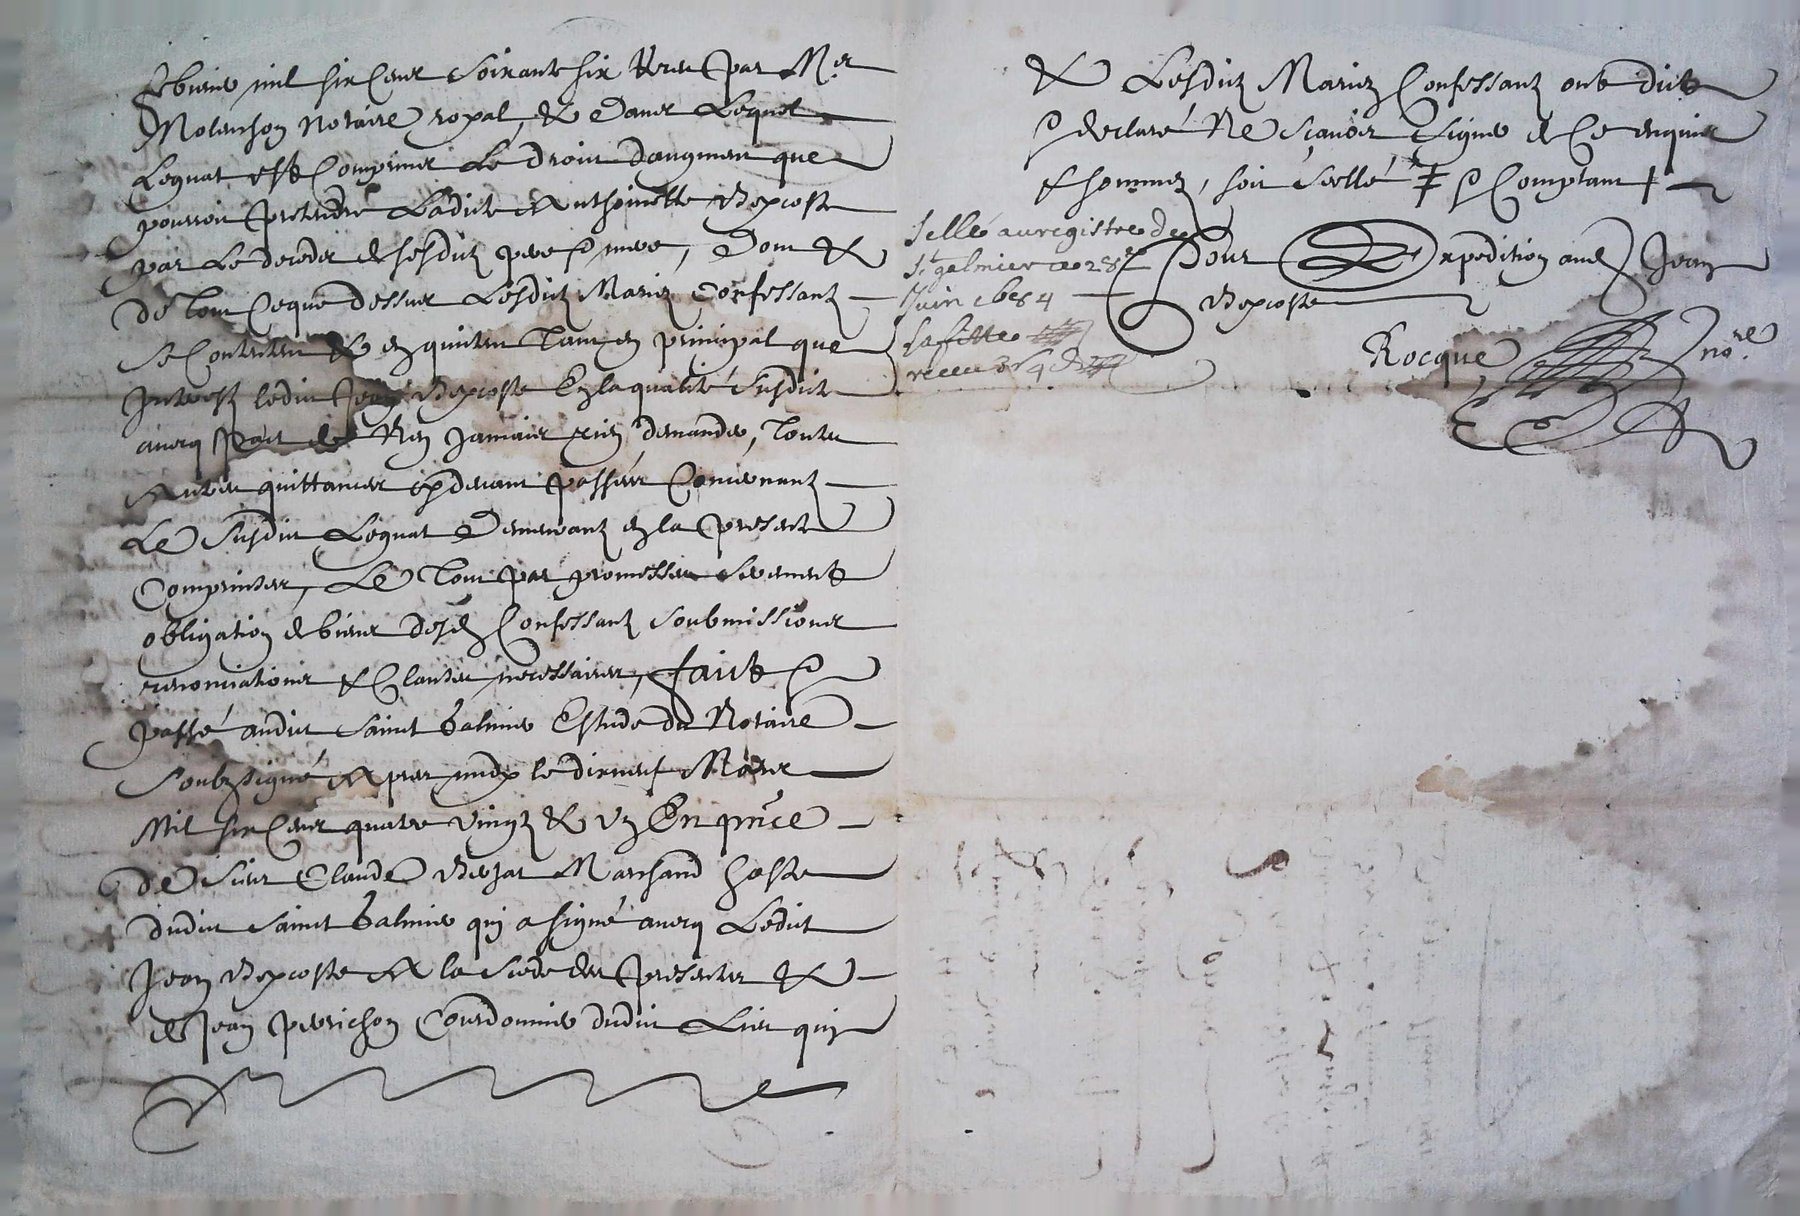 febvrier mil six Cens soixante six Receu par Mer
Molenchon Notaire royal, & dans Lequel
Legnat est Comprins Le droict daugment que
pourroit pretendre Ladicte Anthoinette
par Le deceds de sesdictz pere & mere, Dont &
de tout Ceque dessus Lesdictz Mariez Confessantz
Se Contentent & en quittent Tant en principal que
Interestz ledict Jean En la qualité Susdicte
avecq pact de Ne Jamais rien demander, Toutes
Autres quittances cy devant passées Concernant
Le Susdict Legnat Demeurant en la presente
Comprinses, Le Tout par promesses Serement
obligation de biens desd Confessantz Soubmissions
renonciations & Clauses necessaires, faict &
passé audict Sainct Galmier Estude du Notaire
Soubzsigné Apres midy le dixneuf Mars
Mil six Cens quatre vingtz & Un En pnce
de Sieur Claude Marchand hoste
dudict Sainct Galmier qui a signé avecq Ledict
Jean A la Cede des presentes &
de Jean Perrichon Courdonnier dudict Lieu qui
& Lesdictz Mariez Confessantz ont dict
& declaré Ne Sçavoir Signer de Ce enquis
& sommez, soit Scellé & Comptant
Sellé au registre de
St galmier ce 28e
Juin 1684
receu
Pour Expedition aud Jean
Rocque nore